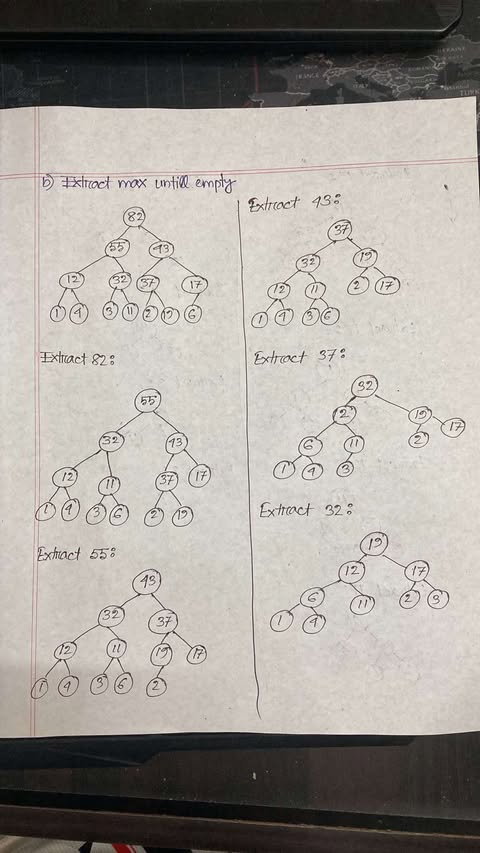 b) Extract max untill empty
82
55 43
12 32 37 17
1 4 3 11 2 19 6
Extract 82:
55
32 43
12 11 37 17
1 4 3 6 2 19
Extract 55:
43
32 37
12 11 19 17
1 4 3 6 2
Extract 43:
37
32 19
12 11 2 17
1 4 3 6
Extract 37:
32
2 19
6 11 2 17
1 4 3
Extract 32:
19
12 17
6 11 2 3
1 4
FRANCE
UKRAINE